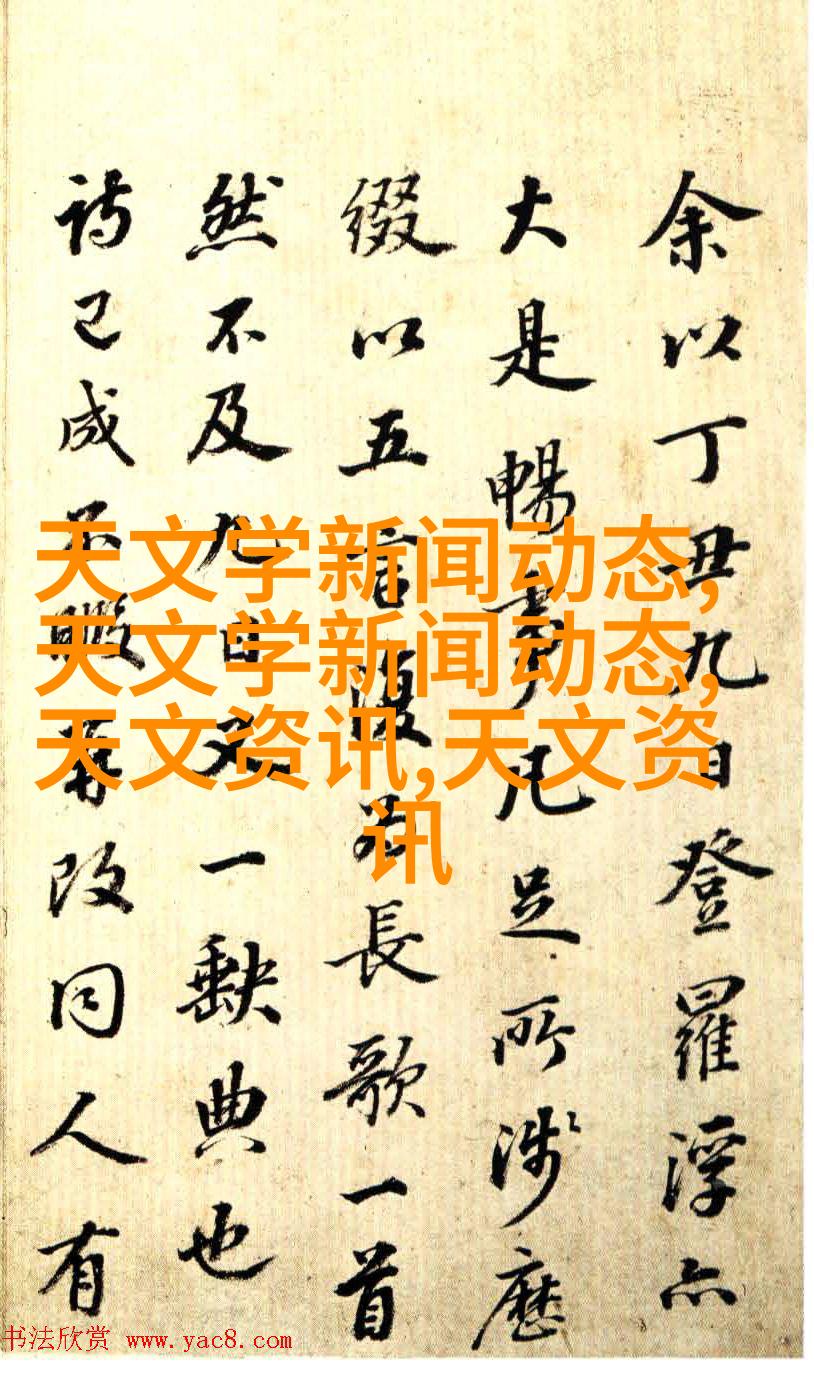 余以丁丑九日登羅浮亦
大是暢事凡足所涉歷
綴以五言復為長歌一首
然不及九日又一缺典也
詩已成不暇再改同人有
天文学新闻动态,
天文学新闻动态,
天文资讯,天文资
讯
书法欣赏 www.yac8.com